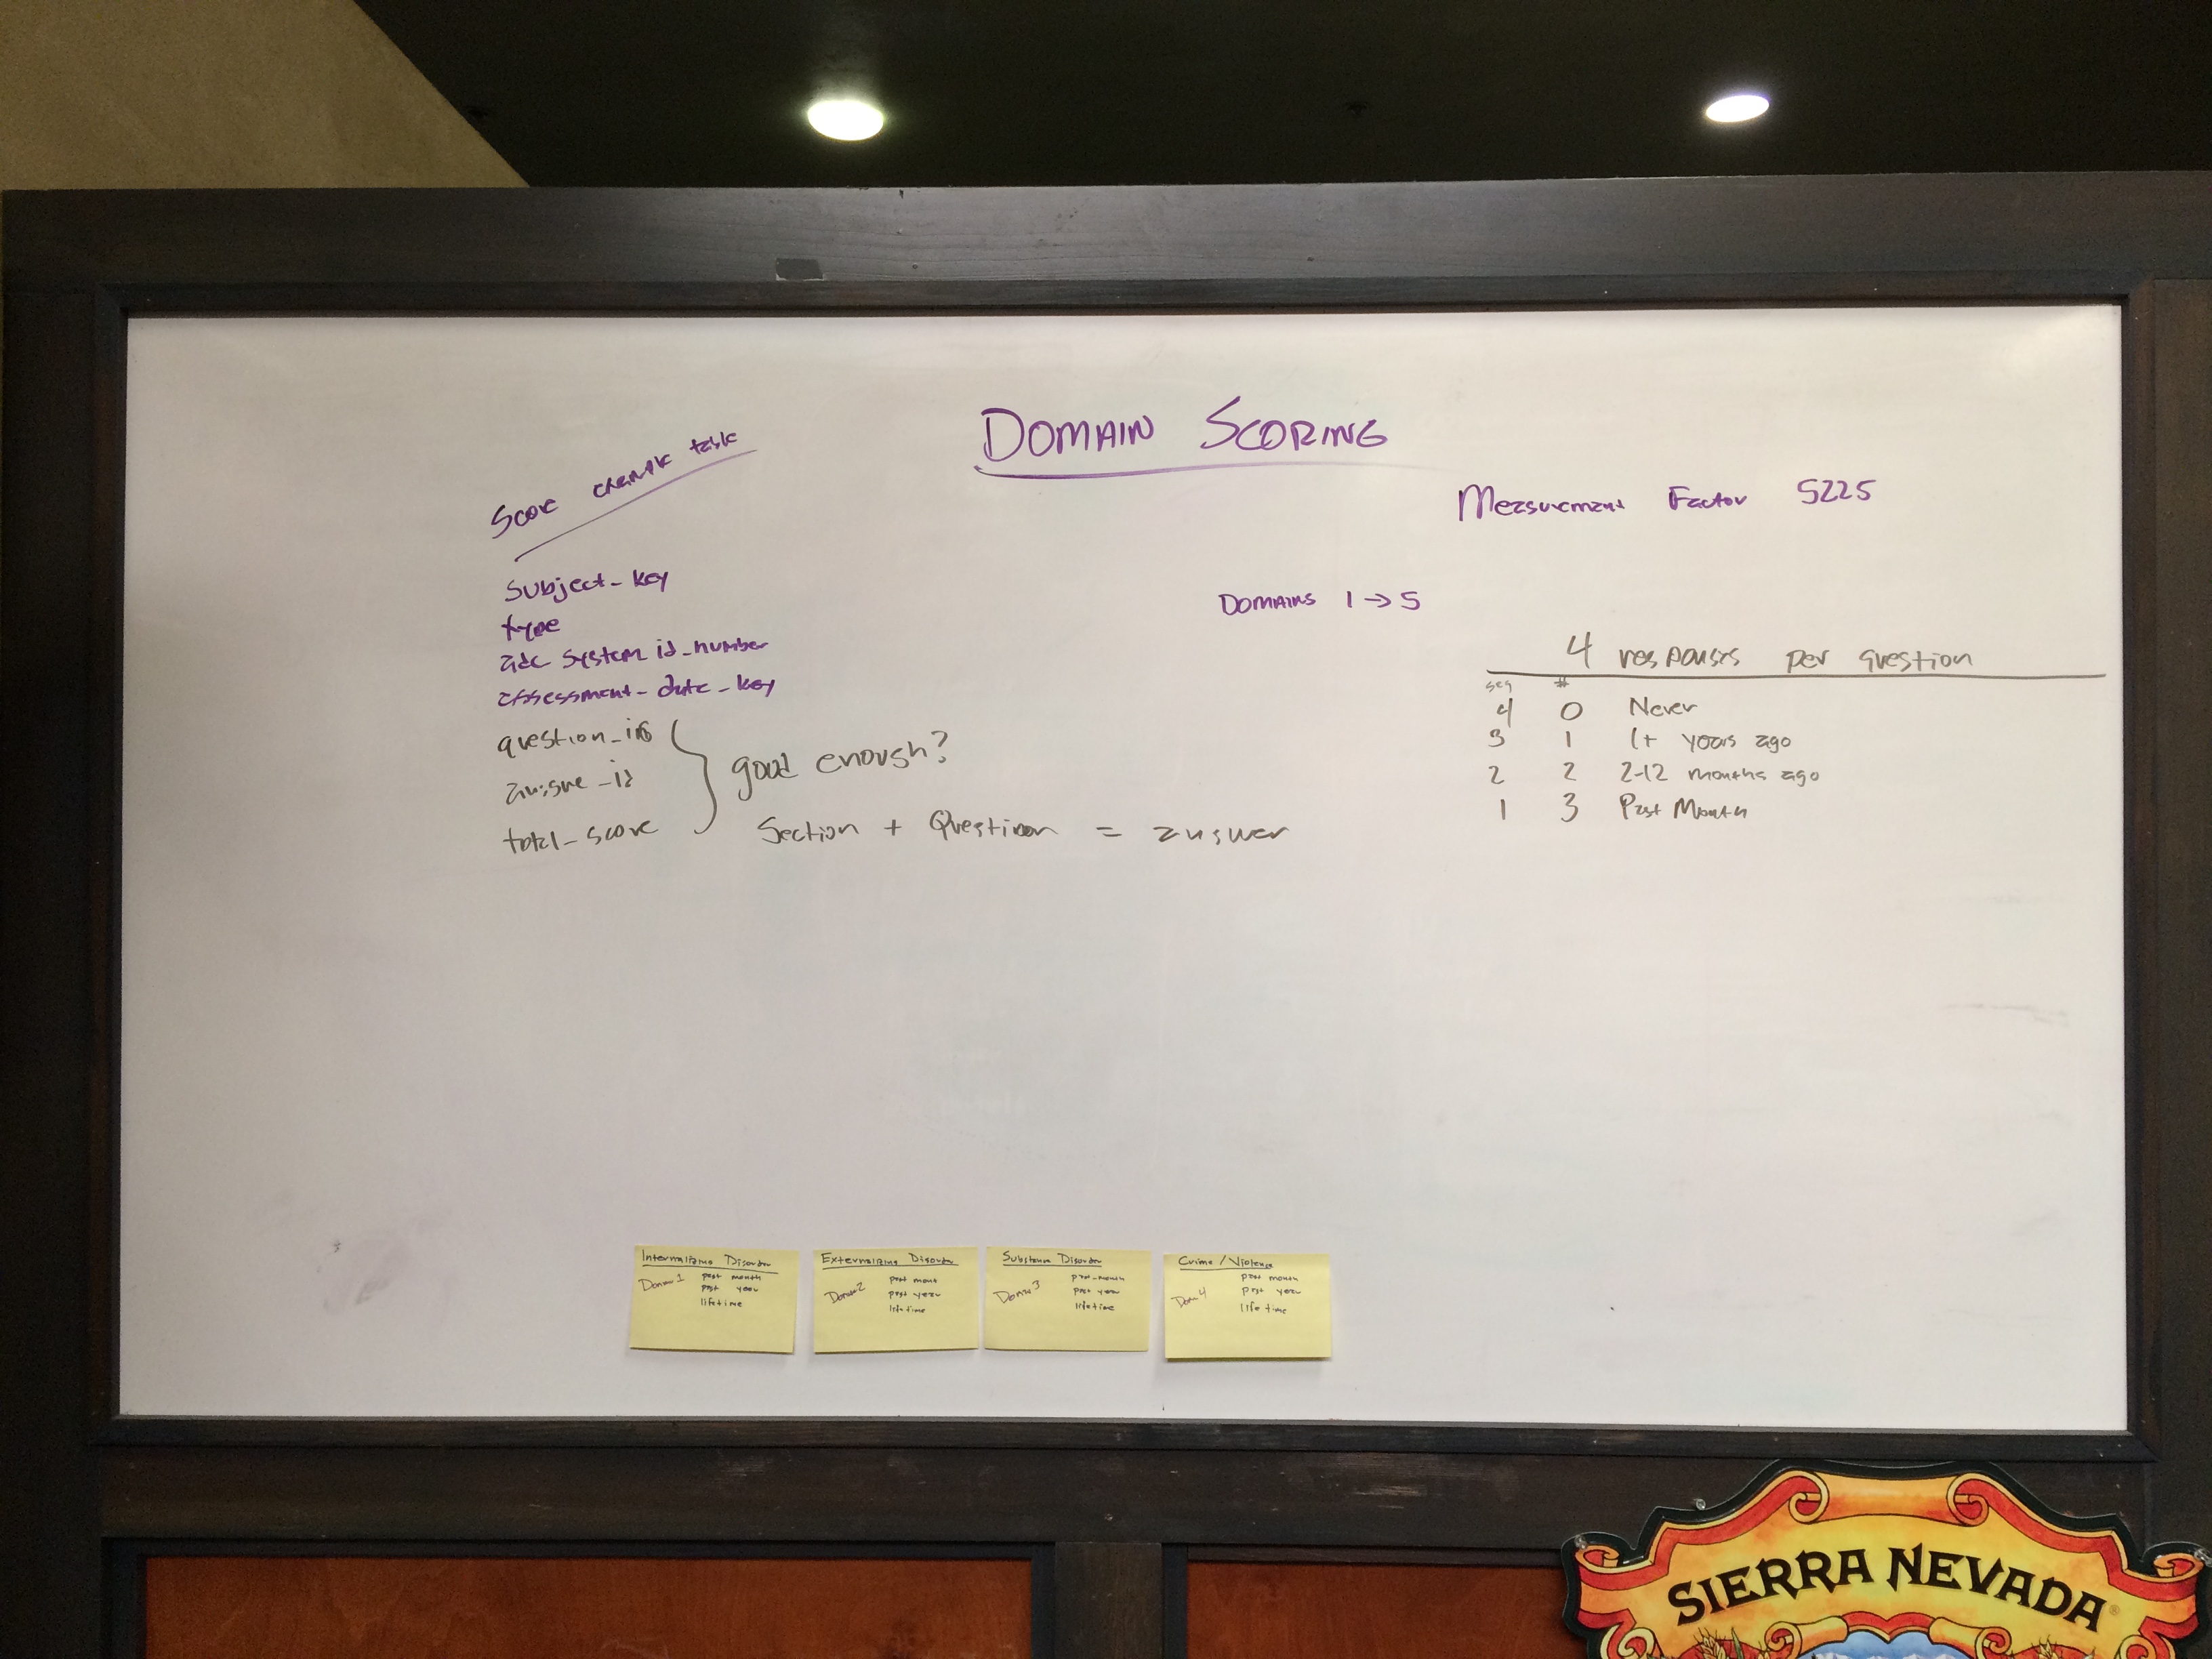 DOMAIN SCORING
Score example task
Measurement Factor 5225
subject_key
type
adc system id_number
assessment_date_key
question_id
_id
total_score
good enough?
Section + Question = answer
DOMAINS 1 → 5
4 responses per question
seq #
4 0 Never
3 1 1+ years ago
2 2 2-12 months ago
1 3 Past Month
Internalizing Disorder
Domain 1
past month
past year
lifetime
Externalizing Disorder
Domain 2
past month
past year
lifetime
Substance Disorder
Domain 3
past month
past year
lifetime
Crime/Violence
Dom 4
past month
past year
life time
SIERRA NEVADA